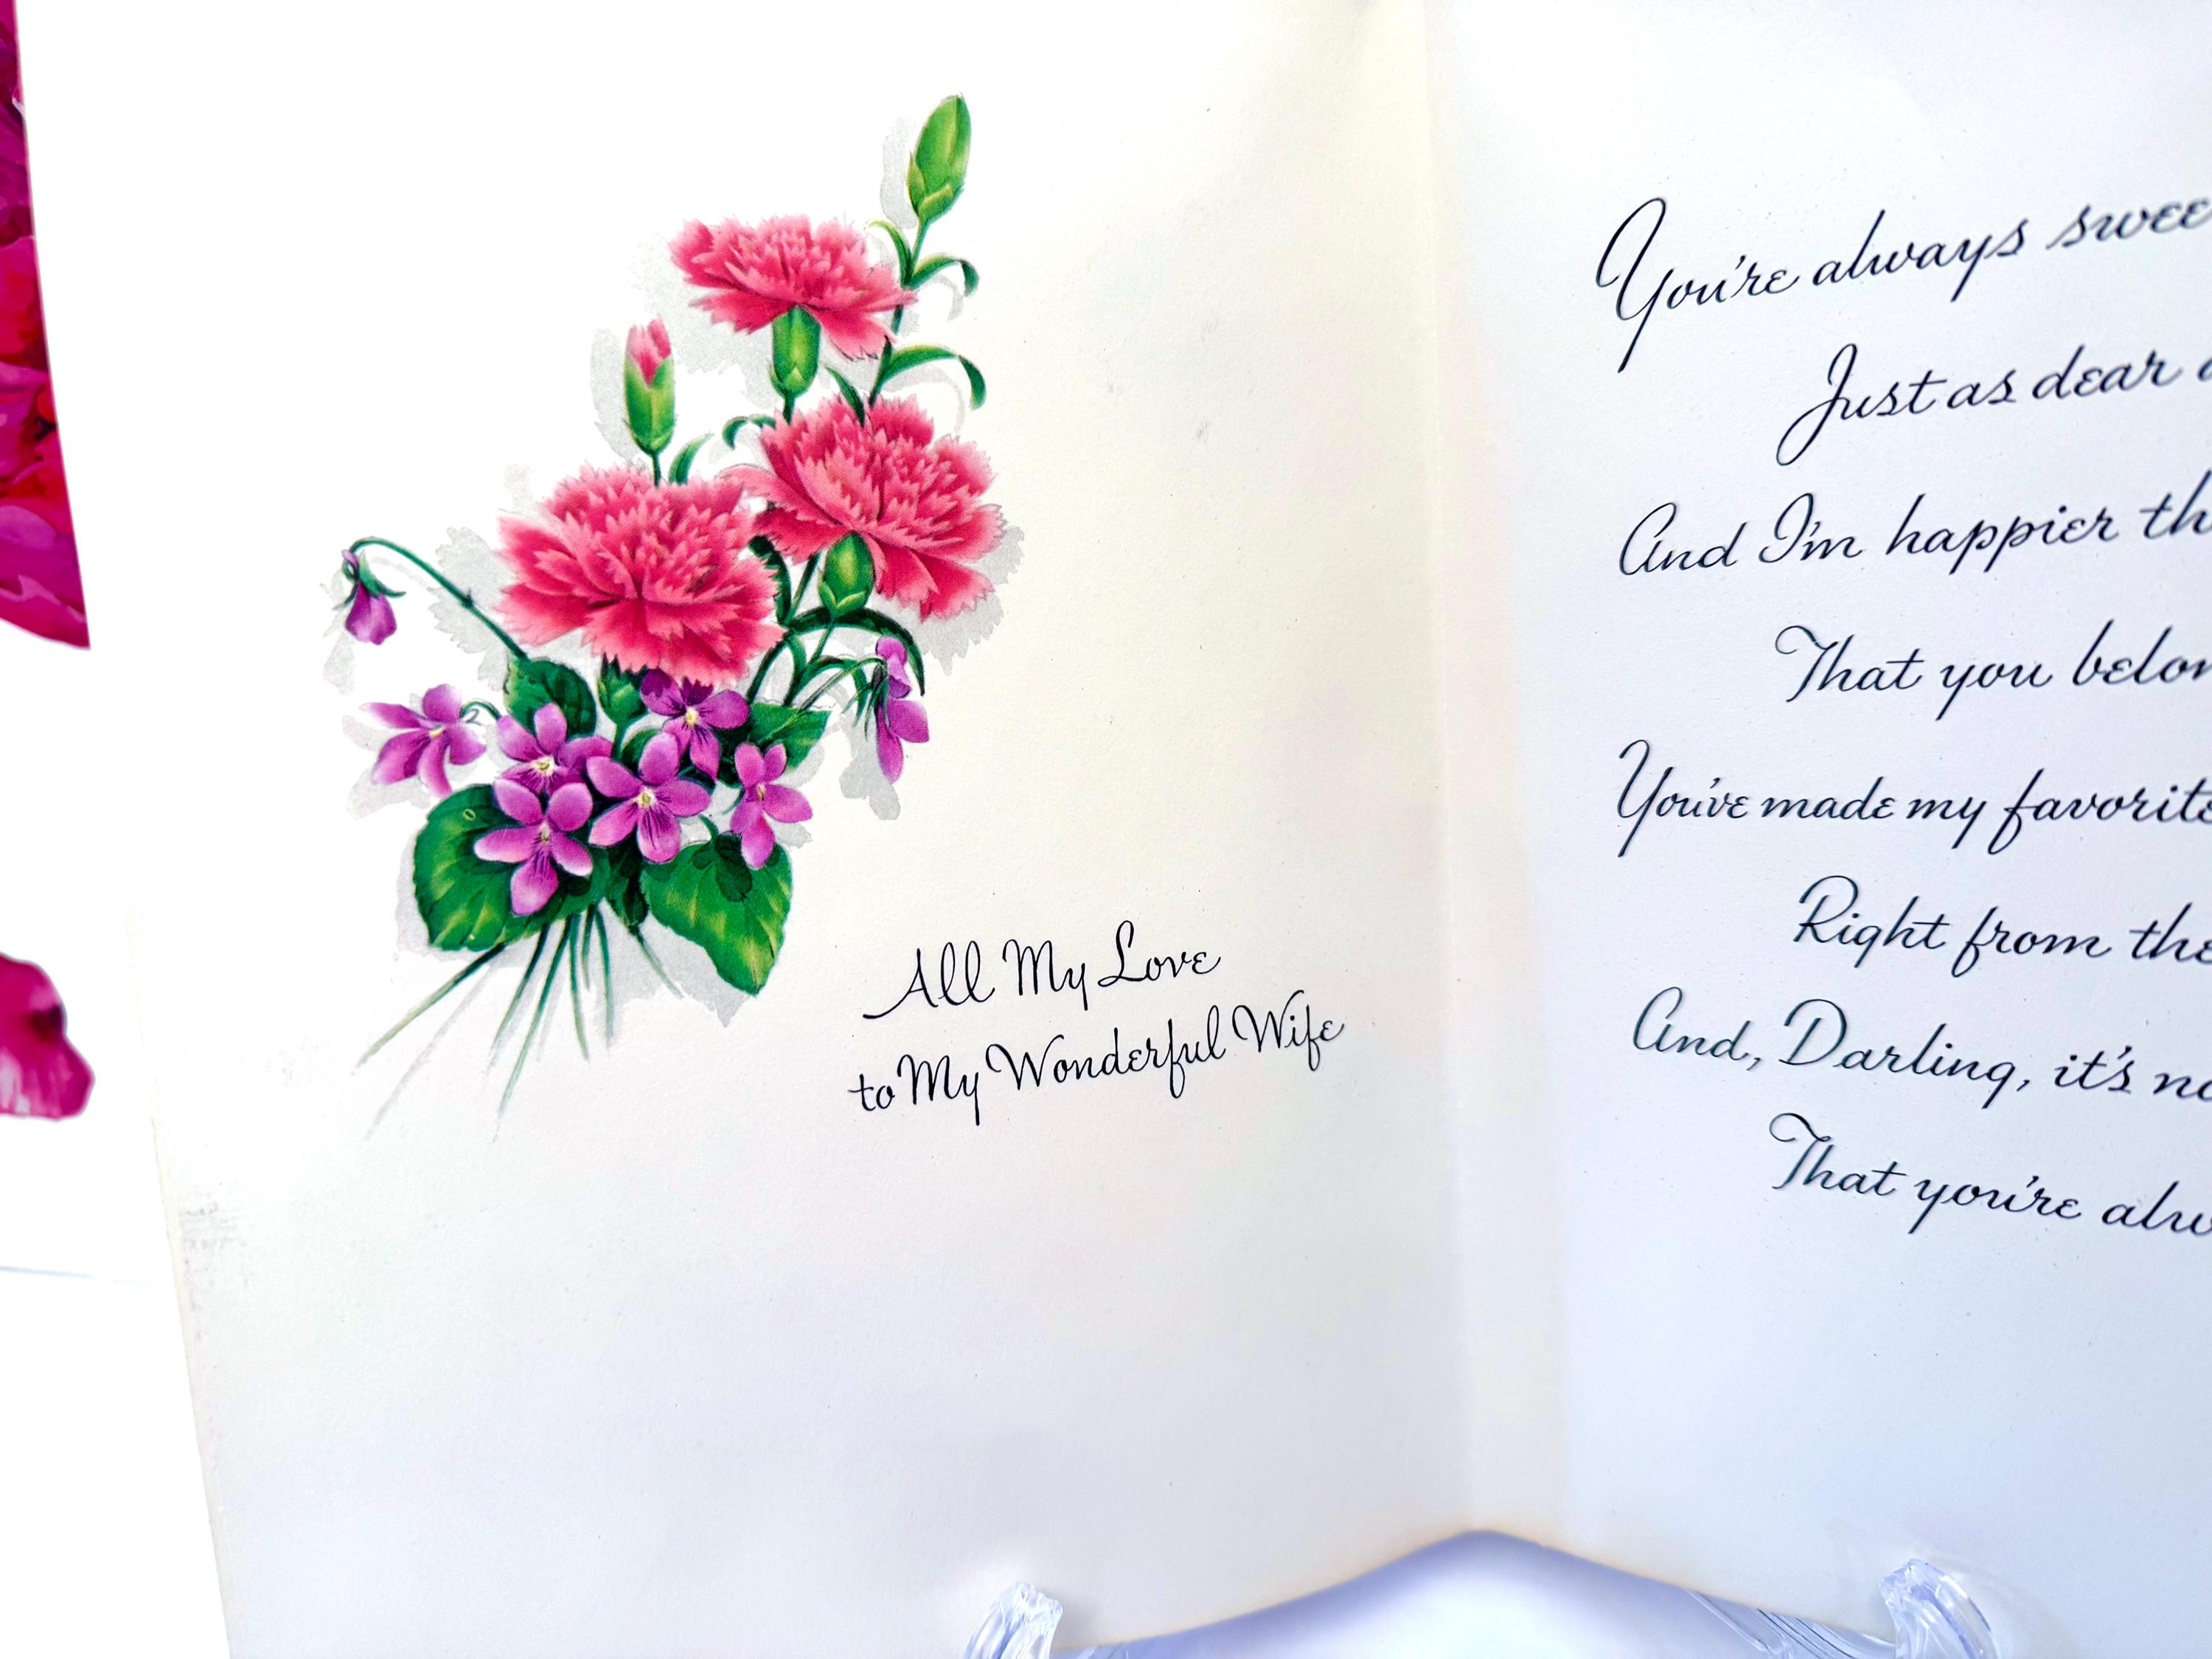 All My Love
to My Wonderful Wife
You're always swee
Just as dear a
And I'm happier th
That you belon
You've made my favorite
Right from the
And, Darling, it's no
That you're alw